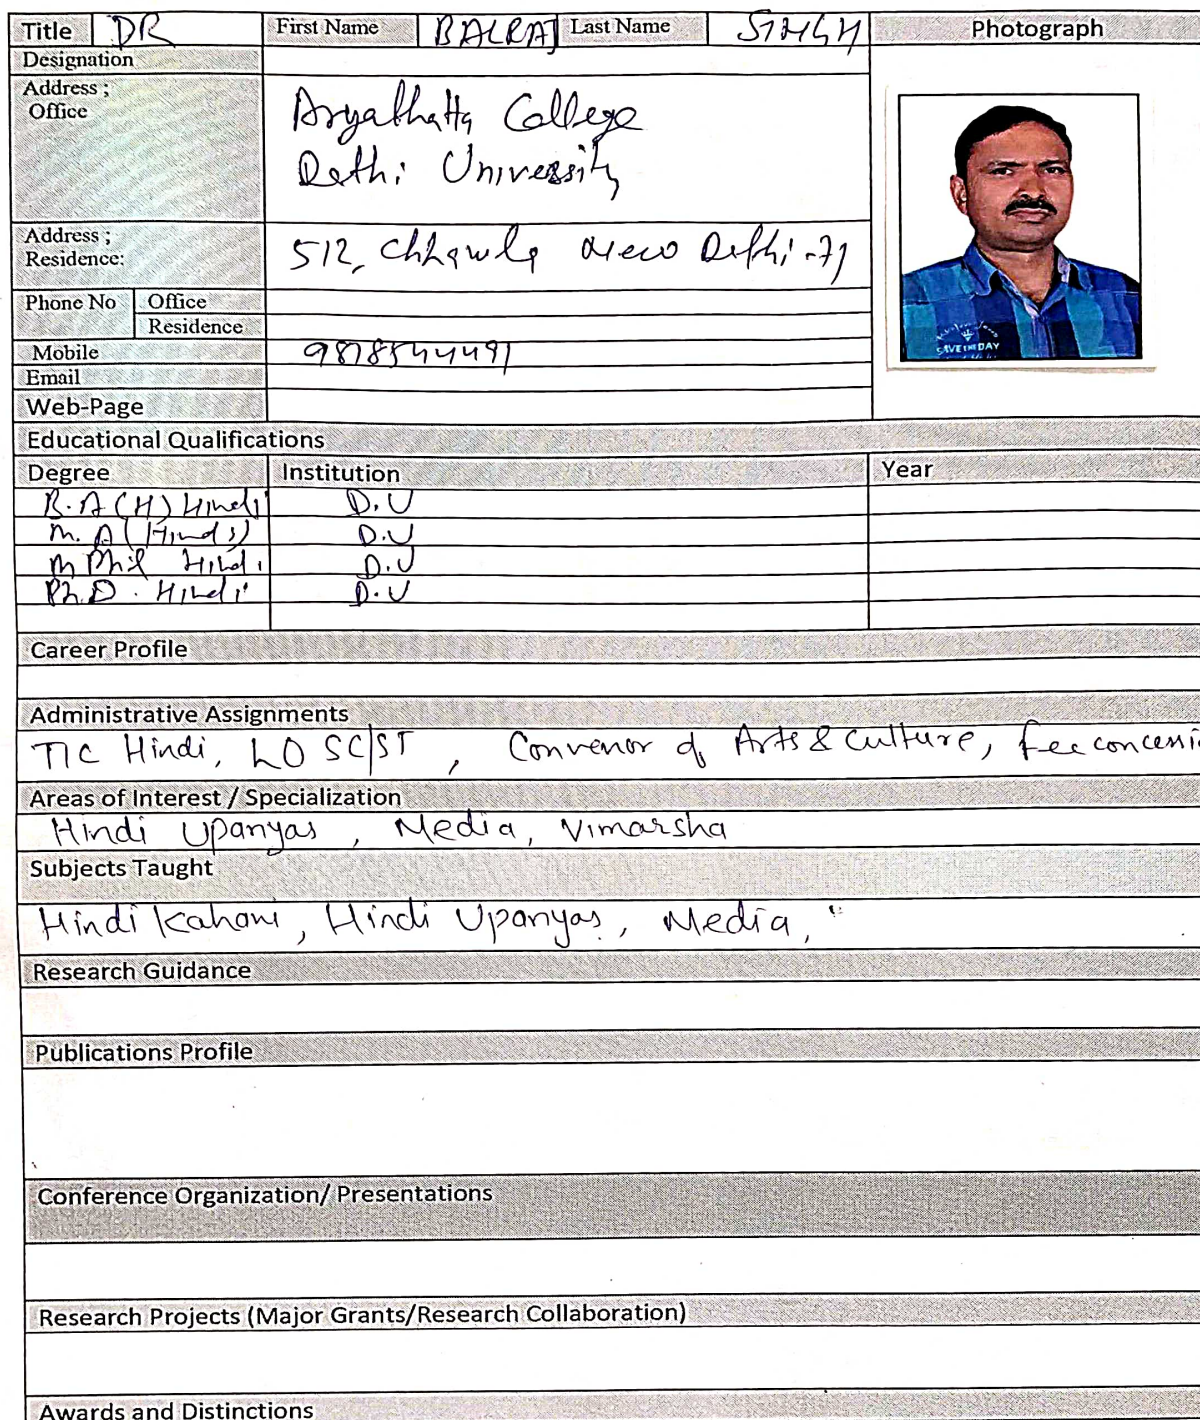 Title DR First Name BALRAJ Last Name SINGH Photograph
Designation
Address ;
Office
Aryabhatta College
Delhi University
Address ;
Residence:
512, Chhawla New Delhi-71
Phone No Office
Residence
Mobile 9818544491
Email
Web-Page
SAVE THE DAY
Educational Qualifications
Degree Institution Year
B.A (H) Hindi D.U
M.A (Hindi) D.U
M Phil Hindi D.U
Ph.D. Hindi D.U
Career Profile
Administrative Assignments
TIC Hindi, LO SC/ST, Convenor of Arts & Culture, Fee concessi
Areas of Interest / Specialization
Hindi Upanyas, Media, Vimarsha
Subjects Taught
Hindi Kahani, Hindi Upanyas, Media,
Research Guidance
Publications Profile
Conference Organization/ Presentations
Research Projects (Major Grants/Research Collaboration)
Awards and Distinctions